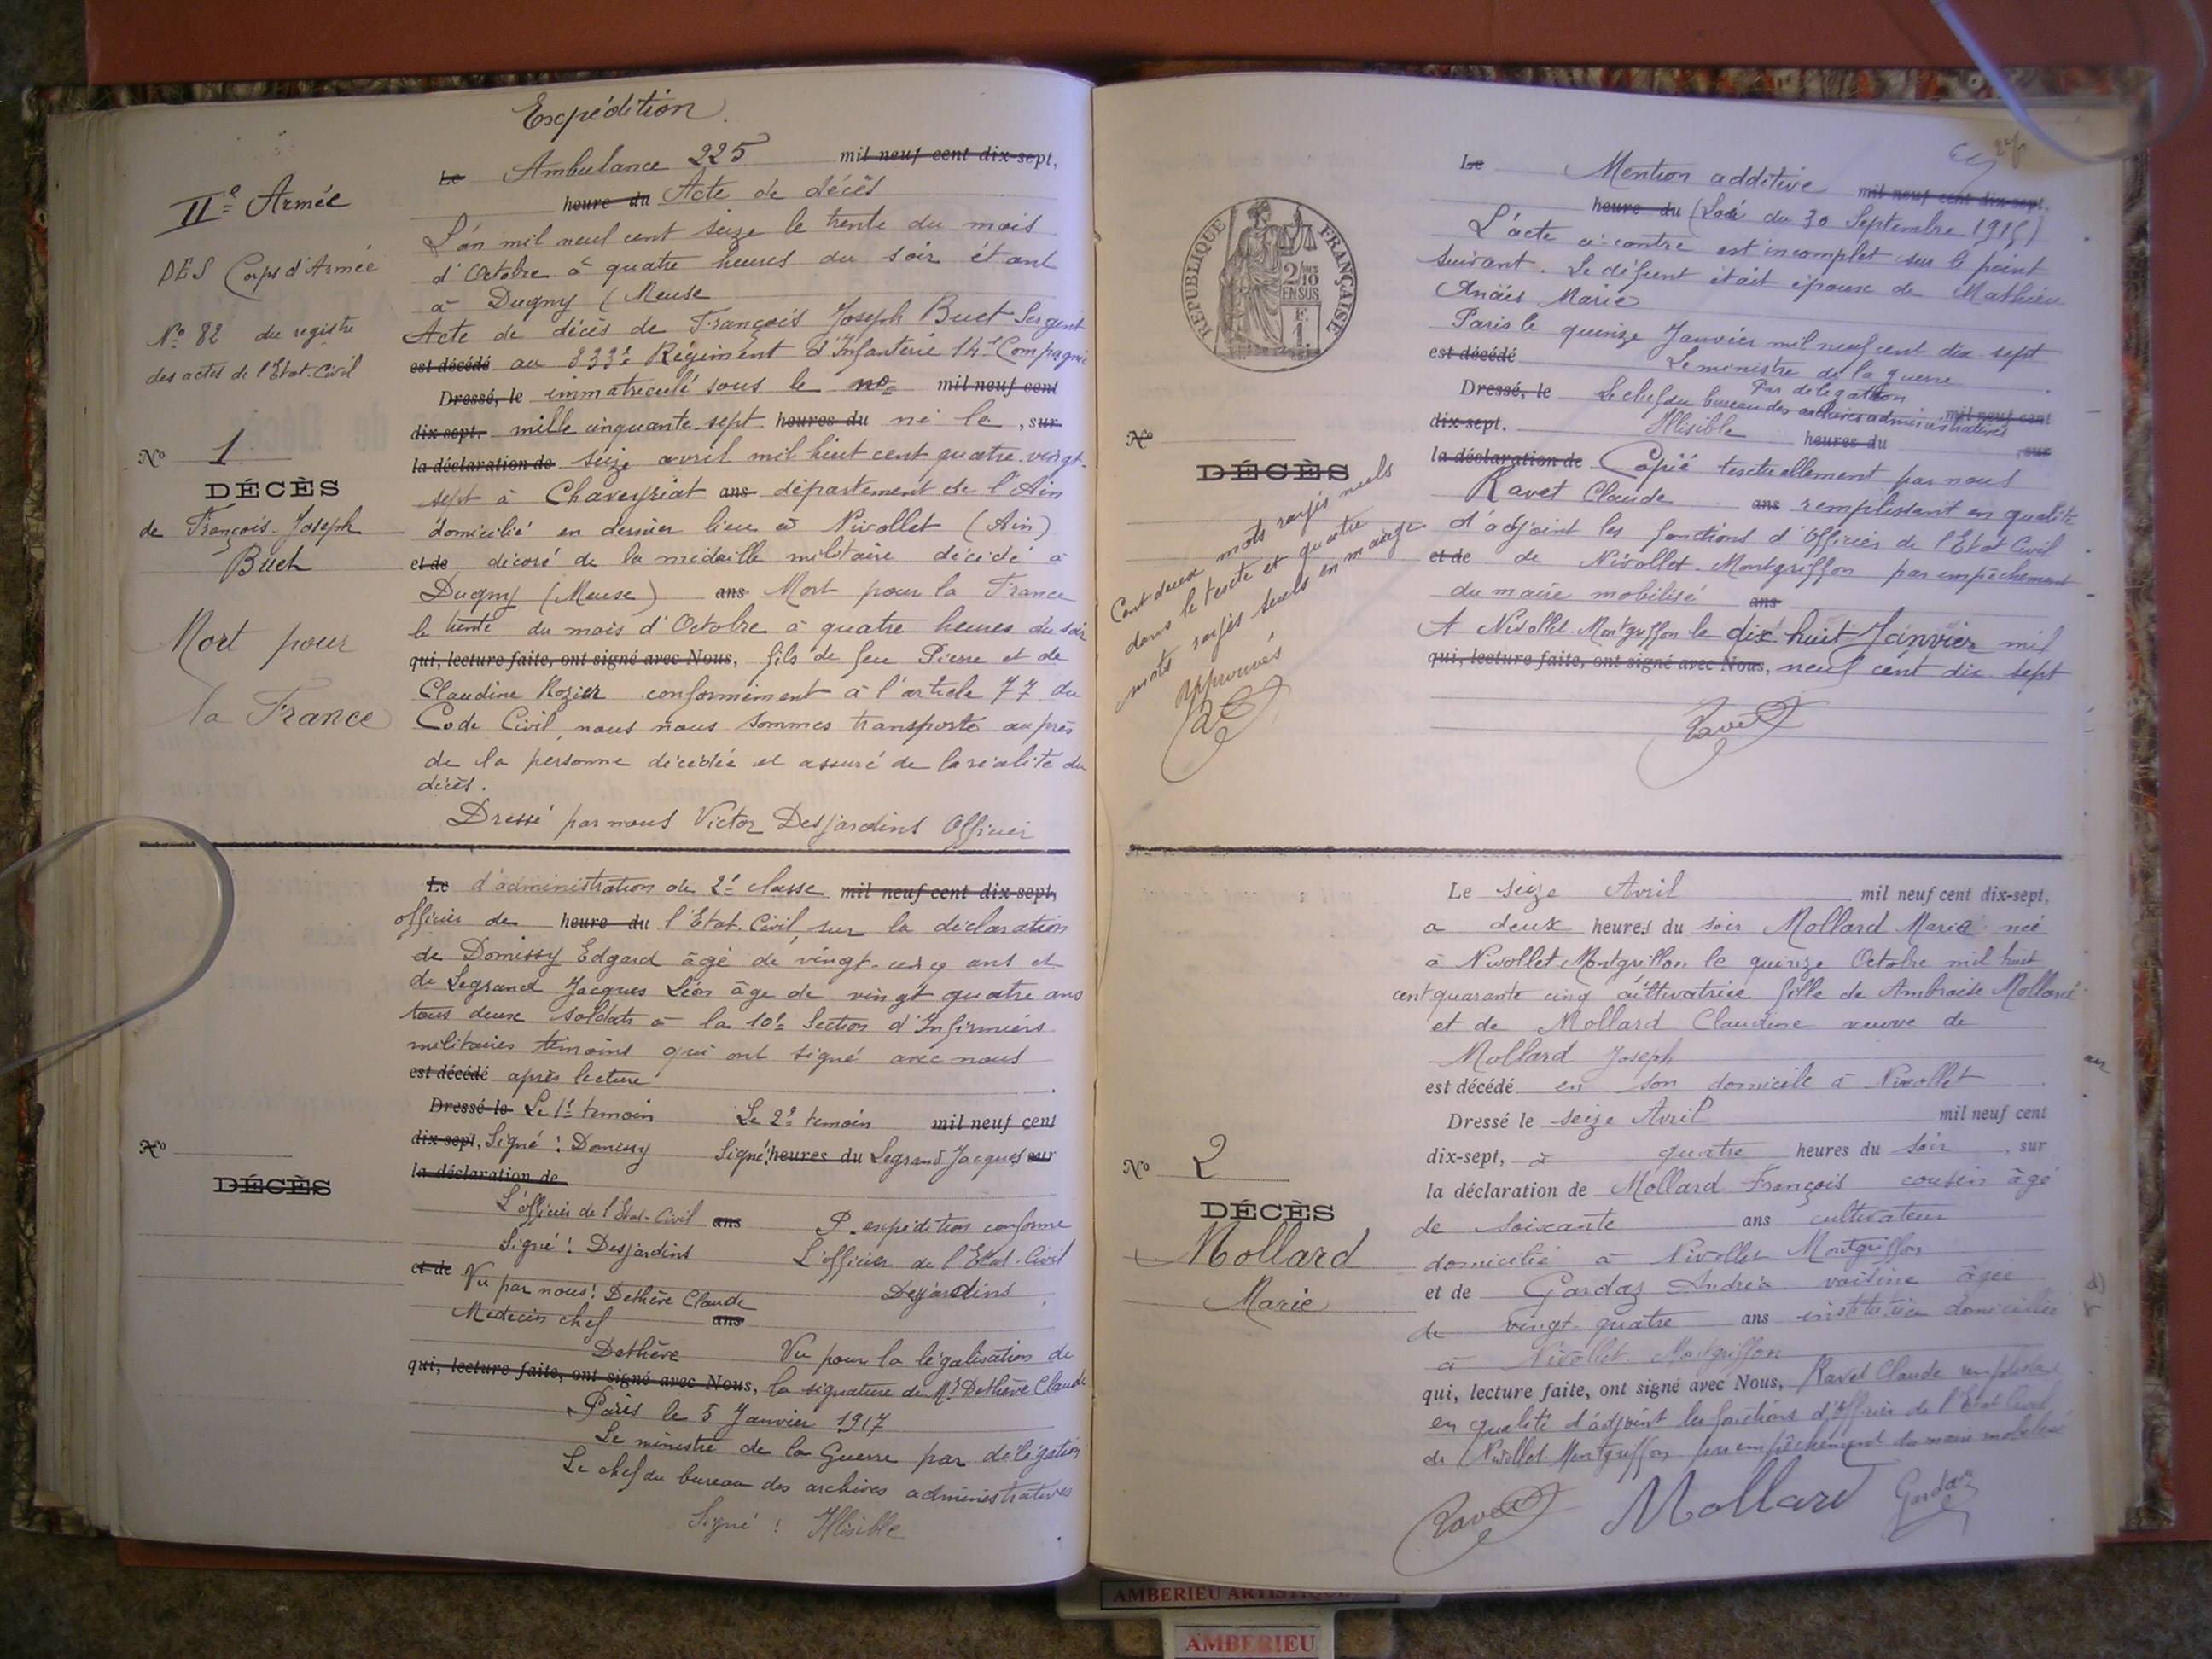 Expédition
IIe Armée
DES Corps d'Armée
No 82 du registre
des actes de l'Etat-Civil
No 1
DÉCÈS
de François-Joseph
Buet
Mort pour
la France
Le Ambulance 225 mil neuf cent dix-sept,
heure du Acte de décès
L'an mil neuf cent seize le trente du mois
d'Octobre à quatre heures du soir étant
à Dugny (Meuse
Acte de décès de François Joseph Buet Sergent
est décédé au 333e Régiment d'Infanterie 14e Compagnie
Dressé, le immatriculé sous le no mil neuf cent
dix-sept, mille cinquante sept heures du né le , sur
la déclaration de seize avril mil huit cent quatre-vingt-
sept à Chaveyriat ans département de l'Ain
domicilié en dernier lieu à Nivollet (Ain)
et de décoré de la médaille militaire décédé à
Dugny (Meuse) ans Mort pour la France
le trente du mois d'Octobre à quatre heures du soir
qui, lecture faite, ont signé avec Nous, fils de feu Pierre et de
Claudine Rozier conformément à l'article 77 du
Code Civil, nous nous sommes transporté auprès
de la personne décédée et assuré de la réalité du
décès.
Dressé par nous Victor Desjardins Officier
No
DÉCÈS
Le d'administration de 2e classe mil neuf cent dix-sept,
officier de heure du l'Etat-Civil, sur la déclaration
de Domissy Edgard âgé de vingt-cinq ans et
de Legrand Jacques Léon âge de vingt quatre ans
tous deux soldats à la 10e Section d'Infirmiers
militaires témoins qui ont signé avec nous
est décédé après lecture
Dressé le Le 1er temoin Le 2e temoin mil neuf cent
dix-sept, Signé : Domissy Signé : heures du Legrand Jacques sur
la déclaration de
L'officier de l'Etat-Civil ans P. expédition conforme
Signé : Desjardins L'officier de l'Etat-Civil
et de Vu par nous : Dethère Claude Desjardins
Medecin chef ans
Dethère Vu pour la légalisation de
qui, lecture faite, ont signé avec Nous, la signature de Mr Dethère Claude
Paris le 5 Janvier 1917
Le ministre de la Guerre par délégation
Le chef du bureau des archives administratives
Signé : Illisible
REPUBLIQUE FRANÇAISE
2/10
EN SUS
F.
1.
No
DÉCÈS
Cent deux mots rayés nuls
dans le texte et quatre
mots rayés nuls en marge
Approuvés
Le Mention additive mil neuf cent dix-sept,
heure du (Loi du 30 Septembre 1915)
L'acte ci-contre est incomplet sur le point
suivant. Le défunt était époux de Mathieu
Anaïs Marie
Paris le quinze Janvier mil neuf cent dix-sept
est décédé Le ministre de la guerre
Par delegation
Dressé, le Le chef du bureau des archives administratives mil neuf cent
dix-sept. Illisible heures du , sur
la déclaration de Copié textuellement par nous
Ravet Claude ans remplissant en qualité
d'adjoint les fonctions d'Officier de l'Etat Civil
et de de Nivollet-Montgriffon par empêchement
du maire mobilisé ans
A Nivollet-Montgriffon le dix-huit Janvier mil
qui, lecture faite, ont signé avec Nous, neuf cent dix sept
Ravet
No 2
DÉCÈS
Mollard
Marie
Le seize Avril mil neuf cent dix-sept,
a deux heures du soir Mollard Marie née
à Nivollet Montgriffon le quinze Octobre mil huit
cent quarante cinq cultivatrice fille de Ambroise Mollard
et de Mollard Claudine veuve de
Mollard Joseph
est décédé en son domicile à Nivollet
Dressé le seize Avril mil neuf cent
dix-sept, à quatre heures du soir , sur
la déclaration de Mollard François cousin âgé
de soixante ans cultivateur
domicilié à Nivollet Montgriffon
et de Gardaz Andréa voisine âgée
de vingt-quatre ans institutrice domiciliée
à Nivollet-Montgriffon
qui, lecture faite, ont signé avec Nous, Ravet Claude remplissant
en qualité d'adjoint les fonctions d'Officier de l'Etat Civil
de Nivollet-Montgriffon par empêchement du maire mobilisé
Ravet Mollard Gardaz
AMBERIEU
AMBERIEU